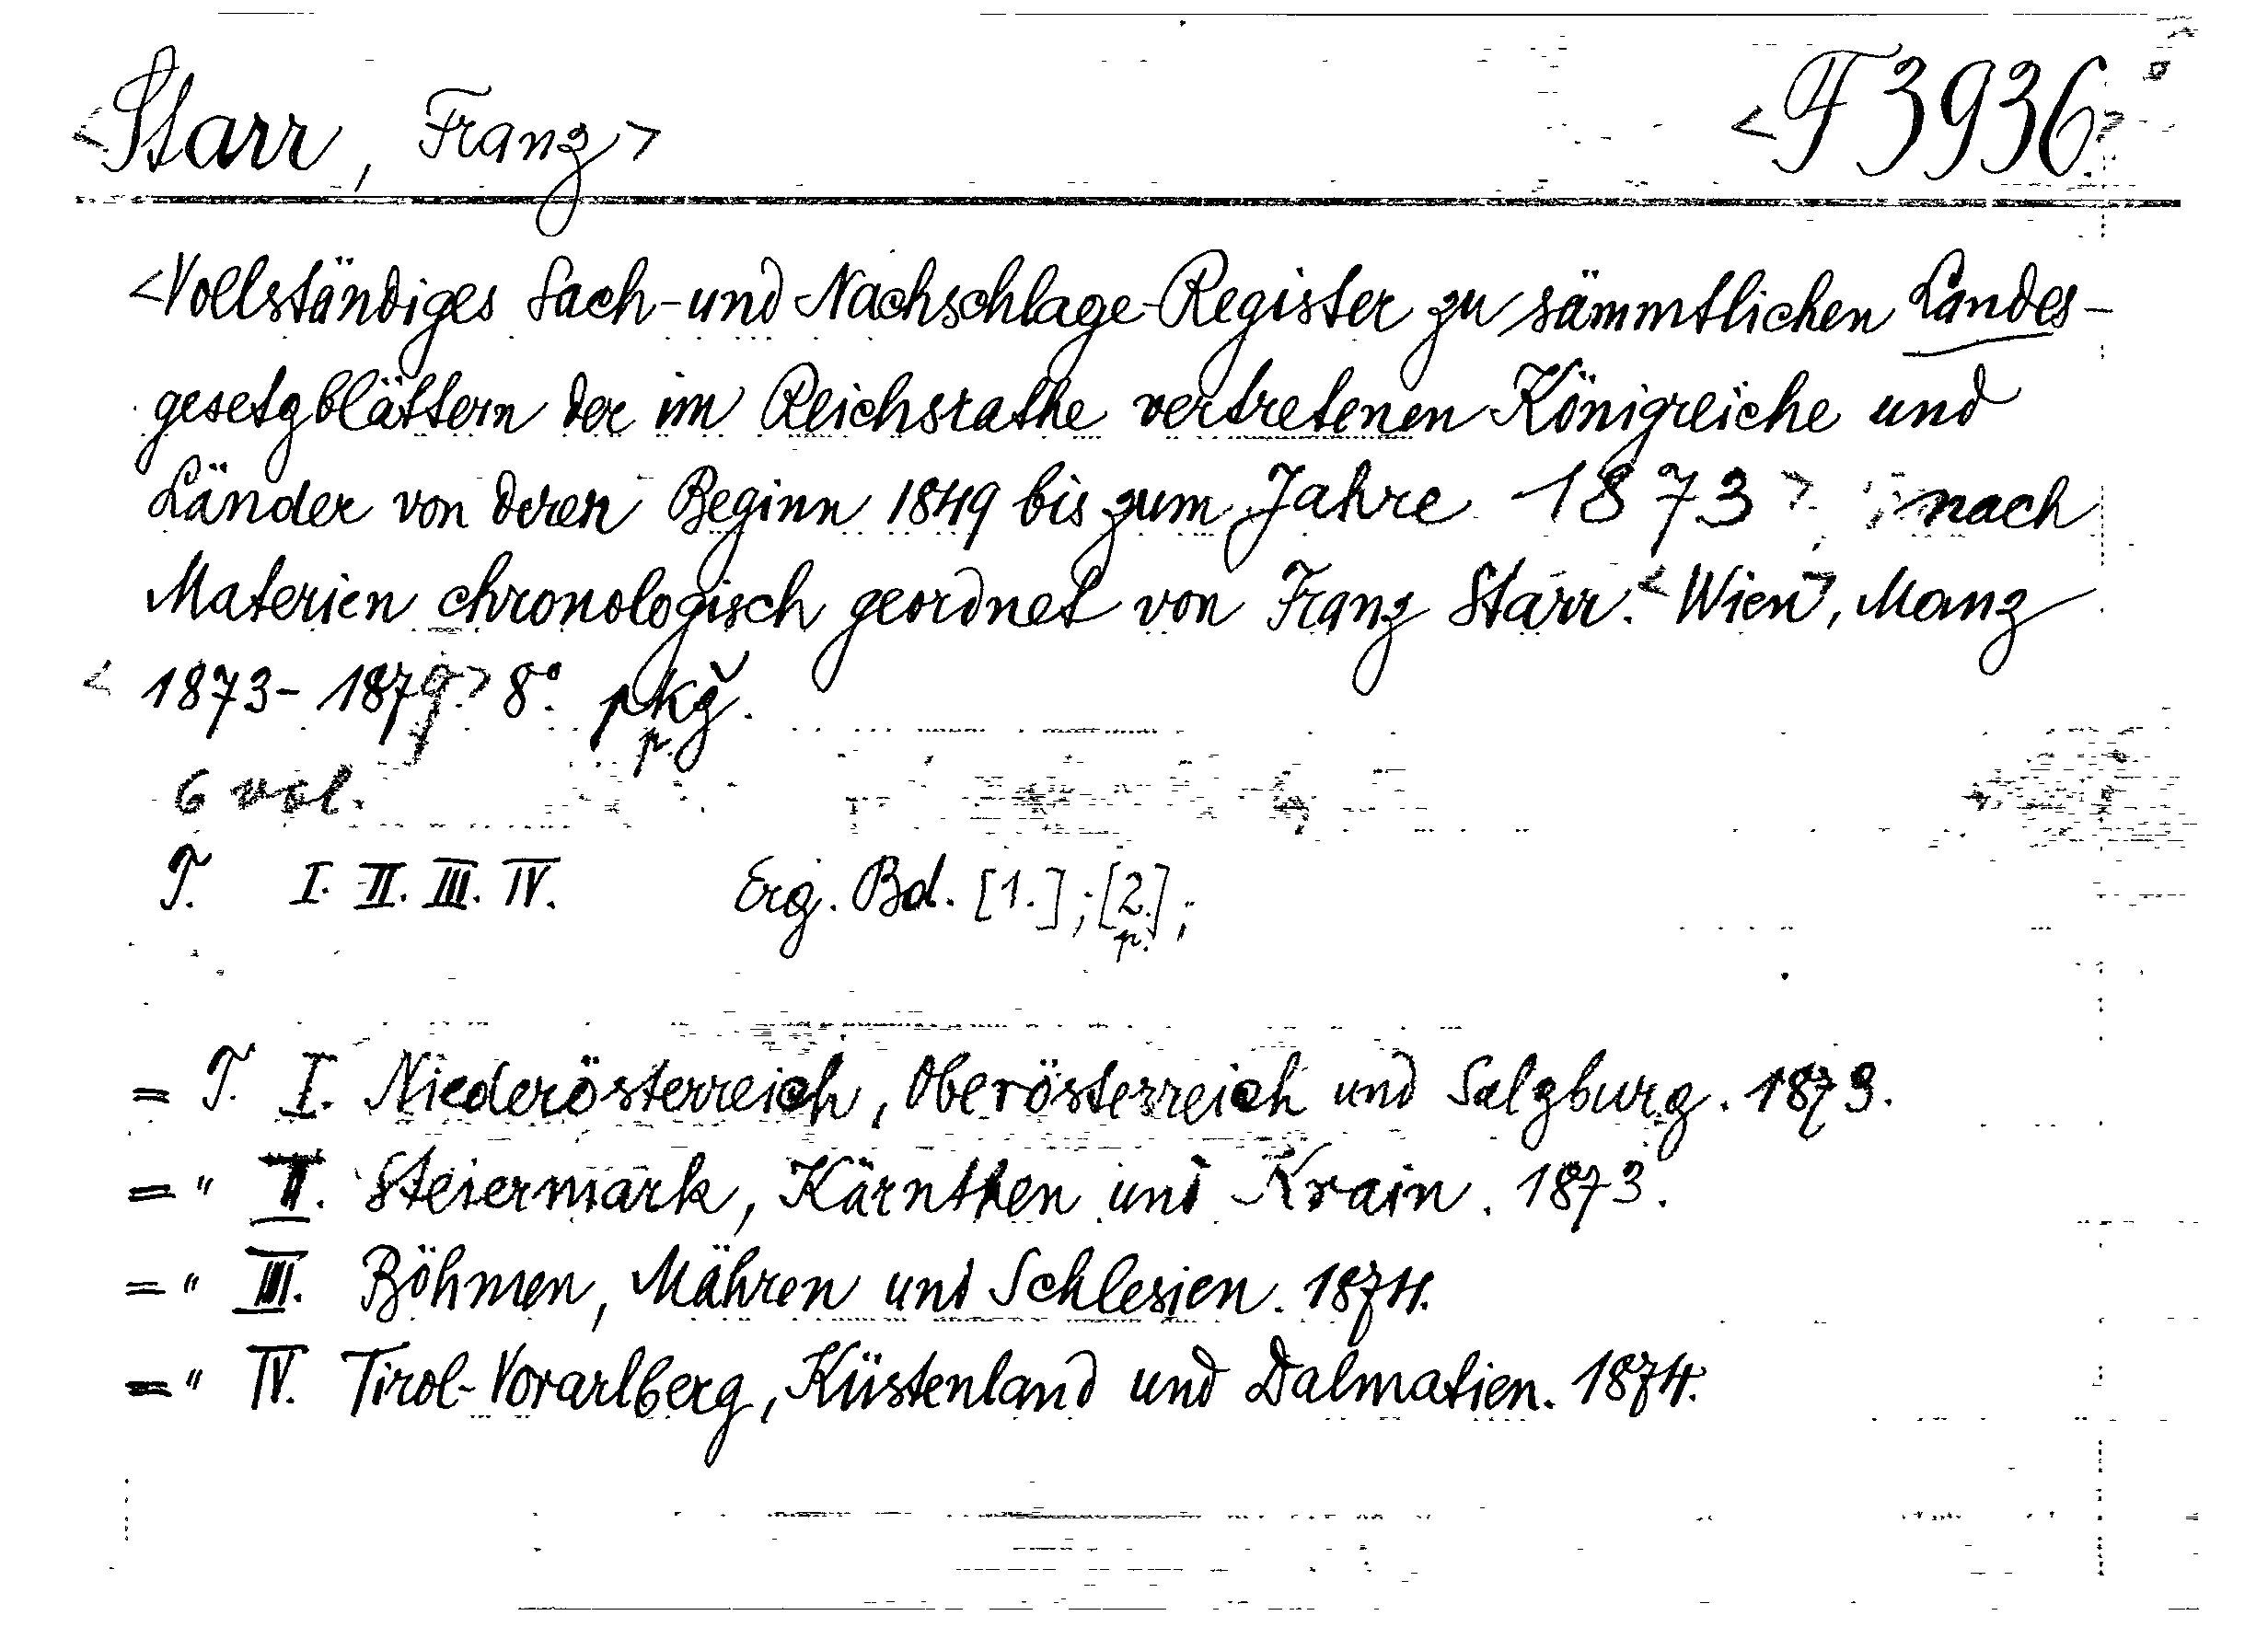 <Starr, Franz> <F 3936>
<Vollständiges Sach- und Nachschlage-Register zu sämmtlichen Landes-
gesetzblättern der im Reichsrathe vertretenen Königreiche und
Länder von deren Beginn 1849 bis zum Jahre 1873> nach
Materien chronologisch geordnet von Franz Starr. <Wien>, Manz
<1873-1879> 8°. pkğ.
p.
6 vol.
T. I. II. III. IV. Erg. Bd. [1.]; [2.];
p.
= T. I. Niederösterreich, Oberösterreich und Salzburg. 1873.
= " II. Steiermark, Kärnthen und Krain. 1873.
= " III. Böhmen, Mähren und Schlesien. 1874.
= " IV. Tirol-Vorarlberg, Küstenland und Dalmatien. 1874.